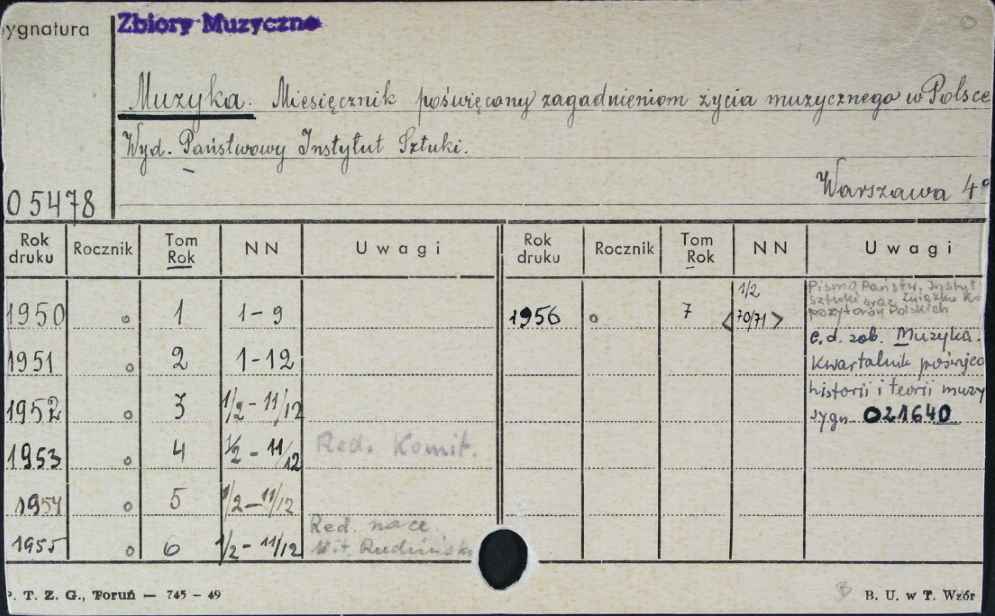 ygnatura
Zbiory Muzyczne
Muzyka. Miesięcznik poświęcony zagadnieniom życia muzycznego w Polsce
Wyd. Państwowy Instytut Sztuki.
Warszawa 4°
05478
Rok druku Rocznik Tom Rok NN Uwagi Rok druku Rocznik Tom Rok NN Uwagi
1950 o 1 1-9
1951 o 2 1-12
1952 o 3 1/2-11/12
1953 o 4 1/2-11/12 Red. Komit.
1954 o 5 1/2-11/12
1955 o 6 1/2-11/12 Red. nacz. Wit. Rudziński
1956 o 7 1/2 <70/71>
Pismo Państw. Instyt
Sztuki oraz Związku Ko
pozytorów Polskich
C.d. zob. Muzyka.
Kwartalnik poświęco
historii i teorii muzy
sygn. 021640
P. T. Z. G., Toruń — 745 - 49
B. U. w T. Wzór